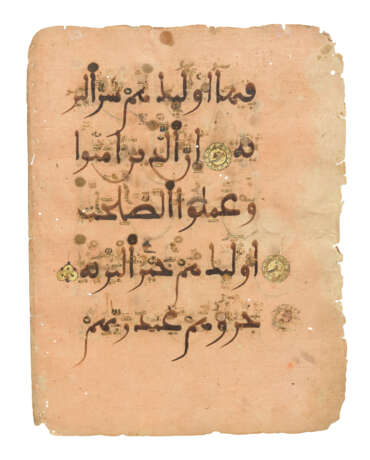 فيها أوليك هم شر البر
ية إن الذين ءامنوا
وعملوا الصلحت
أوليك هم خير البرية
جزاؤهم عند ربهم